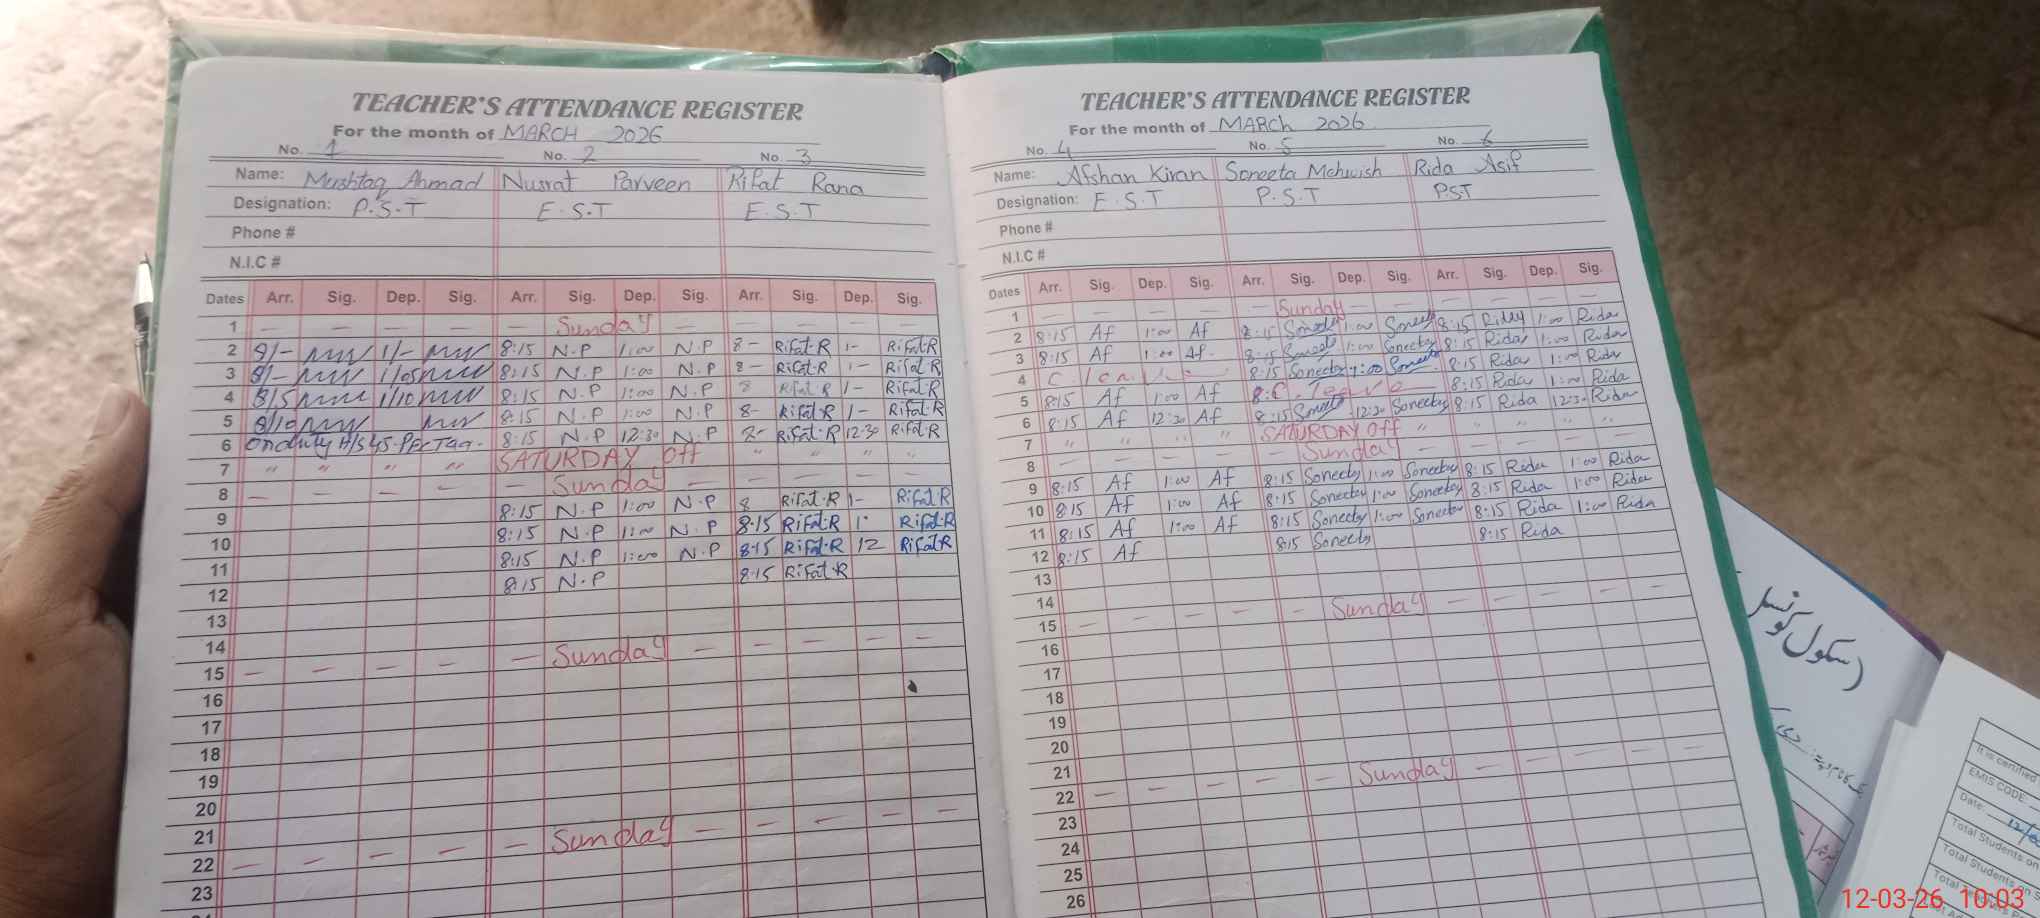 TEACHER'S ATTENDANCE REGISTER
For the month of MARCH 2026
No. 1 No. 2 No. 3
Name: Mushtaq Ahmad Nusrat Parveen Rifat Rana
Designation: P.S.T E.S.T E.S.T
Phone #
N.I.C #
Dates Arr. Sig. Dep. Sig. Arr. Sig. Dep. Sig. Arr. Sig. Dep. Sig.
1 — — — — — Sunday — — — — —
2 8/- 1/- 8:15 N.P 1:00 N.P 8- Rifat.R 1- Rifat.R
3 8/- 1/05 8:15 N.P 1:00 N.P 8- Rifat.R 1- Rifat.R
4 8/5 1/10 8:15 N.P 1:00 N.P 8 Rifat.R 1- Rifat.R
5 8/10 8:15 N.P 1:00 N.P 8- Rifat.R 1- Rifat.R
6 On duty 8:15 N.P 12:30 N.P 8- Rifat.R 12:30 Rifat.R
7 " " " " SATURDAY Off " " " "
8 — — — — — Sunday — — — — —
9 8:15 N.P 1:00 N.P 8 Rifat.R 1- Rifat.R
10 8:15 N.P 1:00 N.P 8:15 Rifat.R 1. Rifat.R
11 8:15 N.P 1:00 N.P 8:15 Rifat.R 12 Rifat.R
12 8:15 N.P 8:15 Rifat.R
13
14
15 — — — — — Sunday — — — — —
16
17
18
19
20
21
22 — — — — — Sunday — — — — —
23
TEACHER'S ATTENDANCE REGISTER
For the month of MARCH 2026
No. 4 No. 5 No. 6
Name: Afshan Kiran Soneeta Mehwish Rida Asif
Designation: E.S.T P.S.T P.S.T
Phone #
N.I.C #
Dates Arr. Sig. Dep. Sig. Arr. Sig. Dep. Sig. Arr. Sig. Dep. Sig.
1 — — — — — Sunday — — — — —
2 8:15 Af 1:00 Af 8:15 1:00 8:15 1:00 Rida
3 8:15 Af 1:00 Af. 8:15 1:00 8:15 Rida 1:00 Rida
4 8:15 1:00 8:15 Rida 1:00 Rida
5 8:15 Af 1:00 Af 8:15 Rida 1:00 Rida
6 8:15 Af 12:30 Af 8:15 12:30 8:15 Rida 12:30 Rida
7 " " " " SATURDAY Off " " " " "
8 — — — — — Sunday — — — — —
9 8:15 Af 1:00 Af 8:15 1:00 8:15 Rida 1:00 Rida
10 8:15 Af 1:00 Af 8:15 1:00 8:15 Rida 1:00 Rida
11 8:15 Af 1:00 Af 8:15 1:00 8:15 Rida 1:00 Rida
12 8:15 Af 8:15 8:15 Rida
13
14
15 — — — — — Sunday — — — — —
16
17
18
19
20
21
22 — — — — — Sunday — — — — —
23
24
25
26
سکول کونسل
It is certified
EMIS CODE:
Date:
Total Students on
Total Students on
12-03-26 10:03